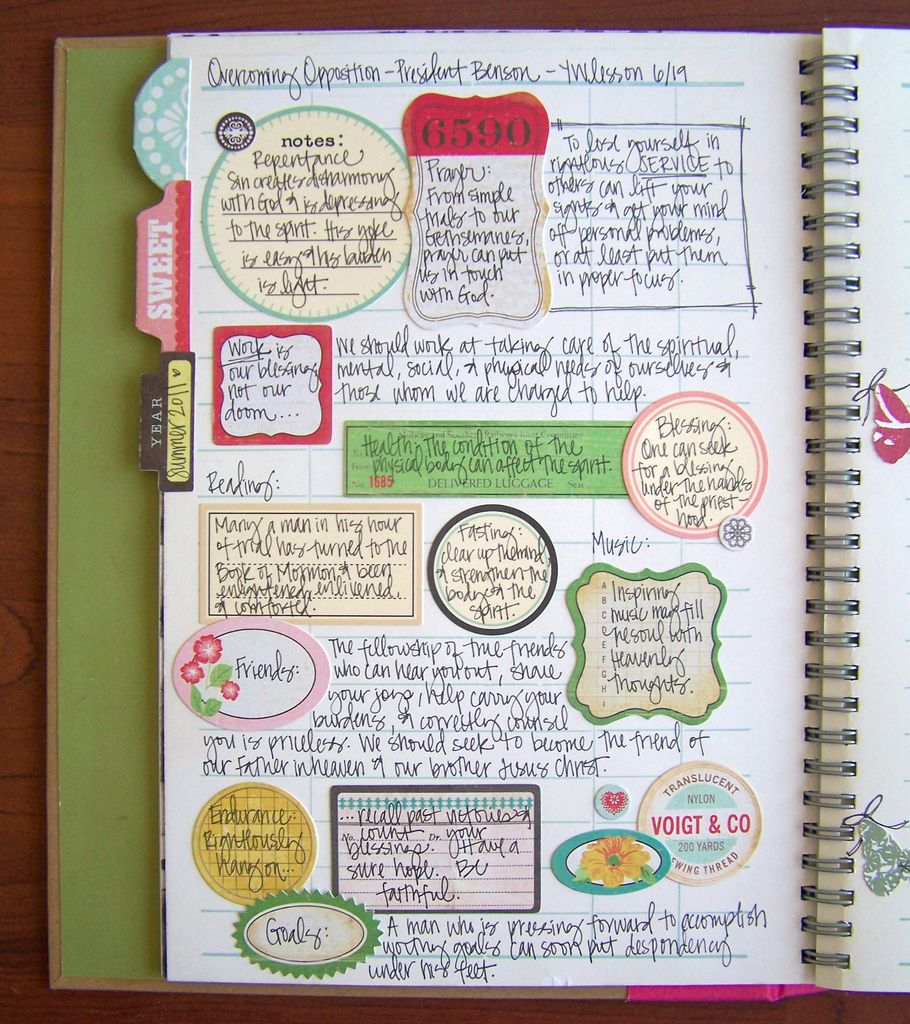 Overcoming Opposition - President Benson - YW lesson 6/19
notes:
Repentance
Sin creates disharmony
with God & is depressing
to the spirit. His yoke
is easy & his burden
is light.
6590
Prayer:
From simple
trials to our
Gethsemanes,
prayer can put
us in touch
with God.
To lose yourself in
righteous SERVICE to
others can lift your
sights & get your mind
off personal problems,
or at least put them
in proper focus.
SWEET
YEAR
Summer 2011
Work is
our blessing
not our
doom...
We should work at taking care of the spiritual,
mental, social, & physical needs of ourselves &
those whom we are charged to help.
Health: The condition of the
physical body can affect the spirit.
To
From
No. 1685 DELIVERED LUGGAGE Seat
Blessing:
One can seek
for a blessing
under the hands
of the priest-
hood.
Reading:
Many a man in his hour
of trial has turned to the
Book of Mormon & been
enlightened, enlivened,
& comforted.
Fasting:
clear up the mind
& strengthen the
body & the
spirit.
Music:
A B C D E F G H I
Inspiring
music may fill
the soul with
Heavenly
Thoughts.
Friends:
The fellowship of true friends
who can hear you out, share
your joys, help carry your
burdens, & correctly counsel
you is priceless. We should seek to become the friend of
our father in heaven & our brother Jesus Christ.
Endurance:
Righteously
Hang on...
...recall past victories &
No. count Dr. your
blessings. Have a
sure hope. Be
faithful.
TRANSLUCENT
NYLON
VOIGT & CO
200 YARDS
EWING THREAD
Goals:
A man who is pressing forward to accomplish
worthy goals can soon put despondency
under his feet.